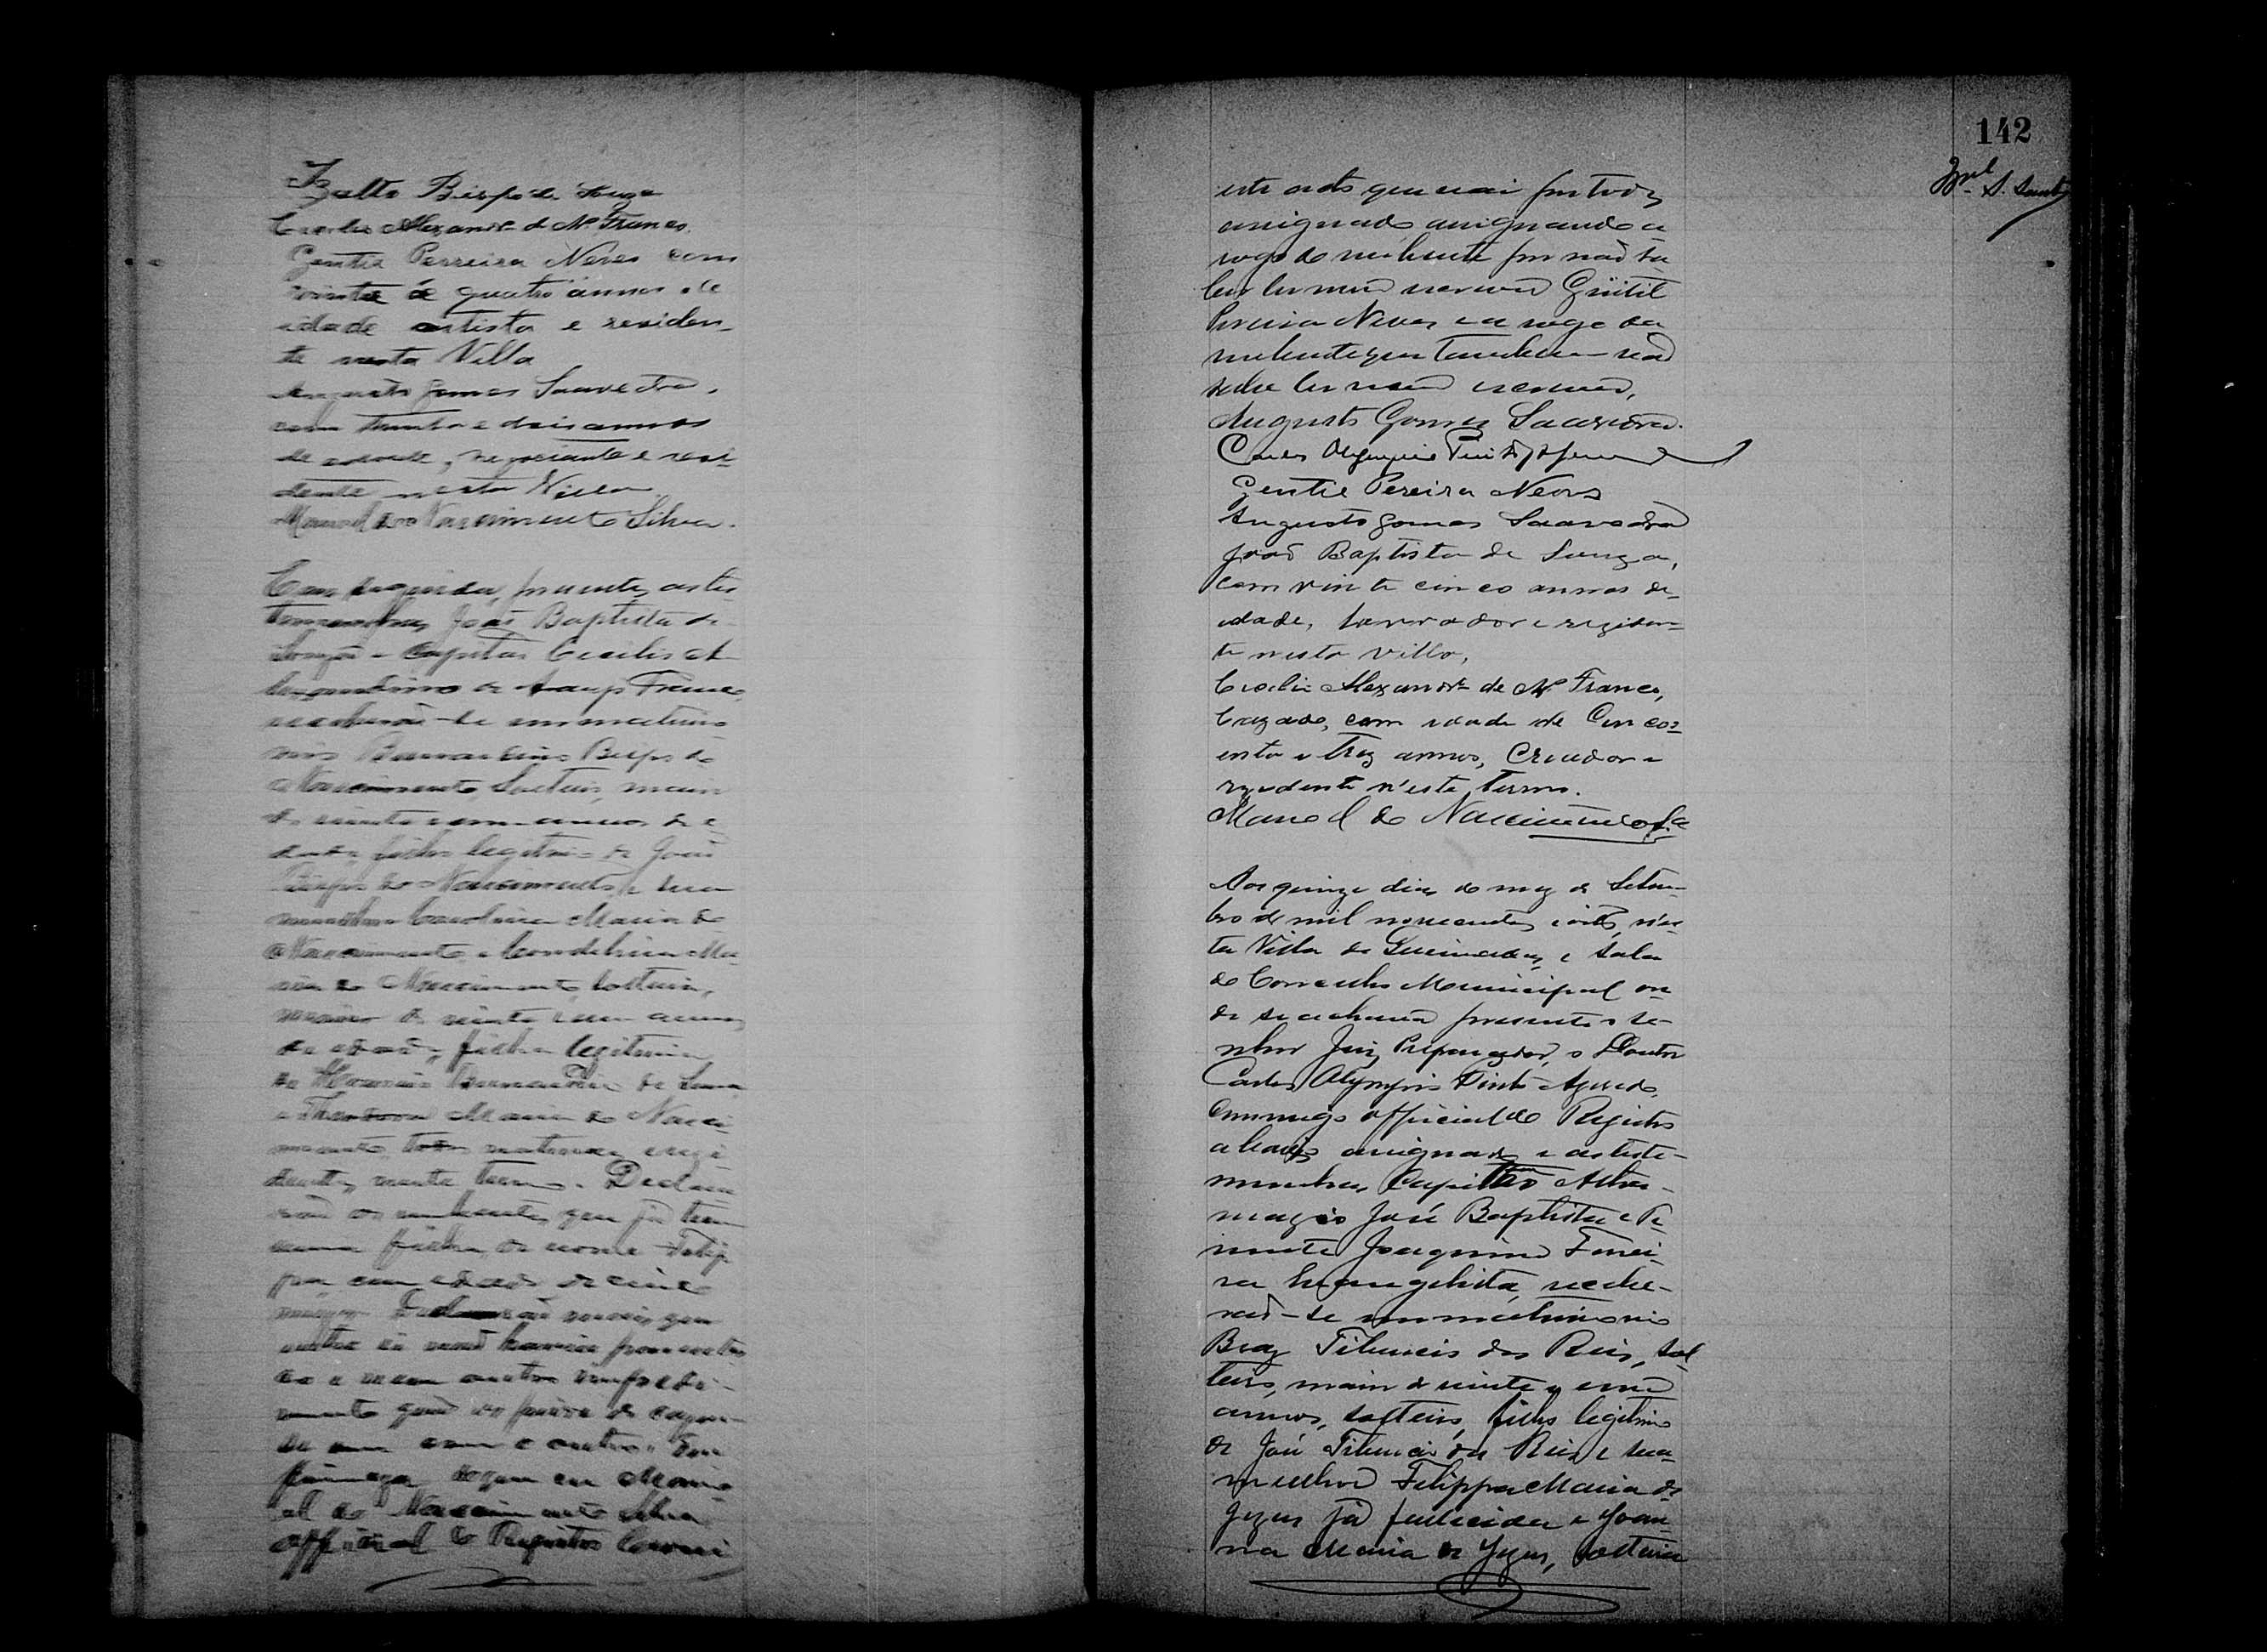 Izalto Bispo de Souza
Cecilio Alexandre de Ar.º Franco.
Gentil Perreira Neves com
trinta e quatro annos de
idade artista e residen-
te nesta Villa
Augusto Gomes Saavedra,
com trinta e dois annos
de edade, negociante e resi-
dente nesta Villa
Manoel do Nascimento Silva.
Em seguida, presentes as tes-
temunhas João Baptista de
Souza e Capitão Cecilio A-
lexandrino de Araujo Franco,
receberão-se em matrimo-
nio Bernardino Bispo do
Nascimento, solteiro, maior
de vinte e um annos de e-
dade, filho legitimo de João
Bispo do Nascimento e sua
mulher Carolina Maria do
Nascimento e Cordolina Ma-
ria do Nascimento, solteira,
maior de vinte e um annos
de edade, filha legitima
de Bernardino de Sena
e Theodora Maria do Nasci-
mento, todos naturaes e resi-
dentes neste termo. Decla-
rarão os nubentes que já tem
uma filha de nome Felip-
pa com edade de cinco
mezes. Declararão mais, que
entre si não havia parentes-
co e nem outro impedi-
mento que os prive de casar-
se um com o outro. Em
firmeza do que eu Mano-
el do Nascimento Silva
official do Registro lavrei
142
este acto que vai por todos
assignado assignando a
rogo do nubente por não sa-
ber ler nem escrever Gentil
Pereira Neves e a rogo da
nubente que tambem não
sabe ler nem escrever,
Augusto Gomes Saavedra.
Carlos Olympio Pinto Azevedo
Gentil Pereira Neves
Augusto Gomes Saavedra
João Baptista de Souza,
com vinte cinco annos de
idade, lavrador e residen-
te nesta villa,
Cecilio Alexandre de Ar.º Franco,
Cazado, com idade de Cinco-
enta e trez annos, Creador e
rezidente n'este termo.
Manoel do Nascimento Sa
Aos quinze dias do mez de Setem-
bro de mil novecentos e oito, n'es-
ta Villa de Queimadas, e sala
do Conselho Municipal on-
de se achava presente o se-
nhor Juiz Preparador, o Doutor
Carlos Olympio Pinto Azevedo,
commigo official do Registro
abaixo assignado e as teste-
munhas Capitão
José Baptista e Te-
nente Joaquim Ferrei-
ra Evangelista, recebe-
rão-se em matrimonio
Braz Tiburcio dos Reis, sol-
teiro, maior de vinte e um
annos, solteiro, filho legitimo
de José Tiburcio dos Reis e sua
mulher Felippa Maria de
Jezus já fallecida e Joan-
na Maria de Jezus, solteira